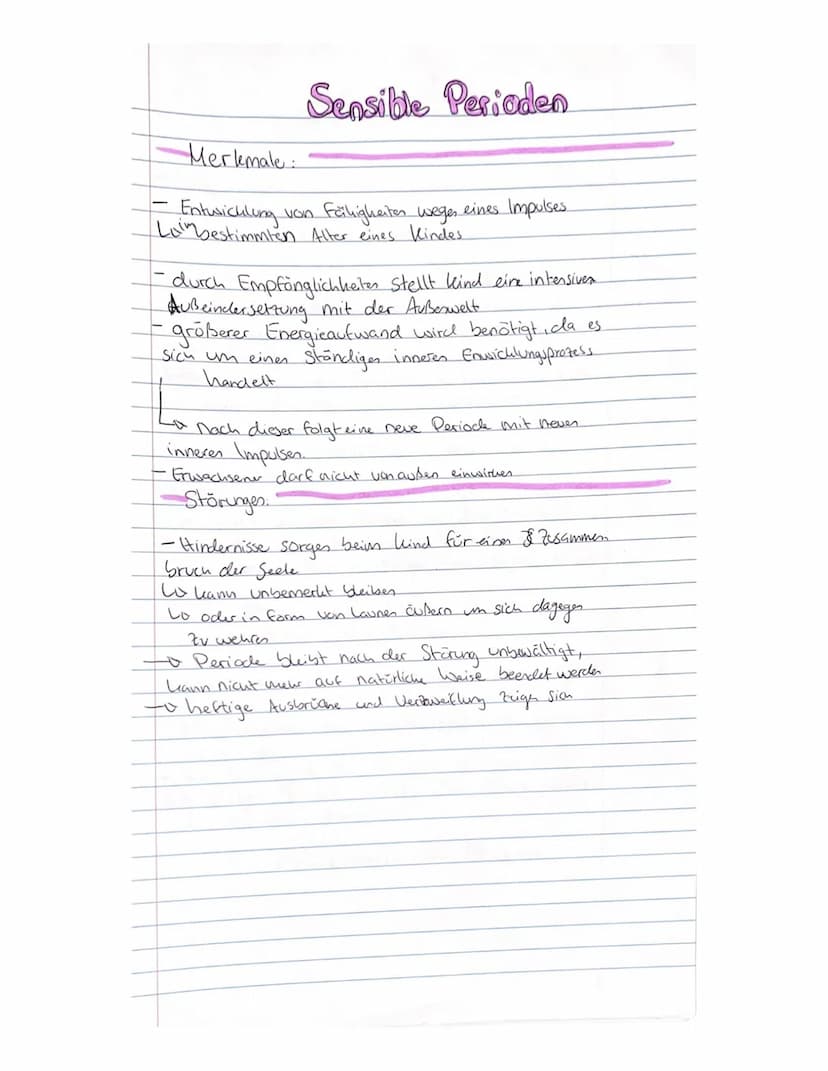 Sensible Perioden
Merkmale:
- Entwicklung von Fähigkeiten wegen eines Impulses
↳ im bestimmten Alter eines Kindes
- durch Empfänglichkeiten stellt Kind eine intensiven
Außeindersetzung mit der Außenwelt
- größerer Energieaufwand wird benötigt, da es
sich um einen ständigen inneren Enwicklungsprozess
handelt
↳ nach dieser folgt eine neue Periode mit neuen
inneren Impulsen.
- Erwachsener darf nicht von außen einwirken
Störungen:
- Hindernisse sorgen beim Kind für einen Zusammen
bruch der Seele
↳ kann unbemerkt bleiben
↳ oder in Form von Launen äußern um sich dagegen
zu wehren
→ Periode bleibt nach der Störung unbewältigt,
kann nicht mehr auf natürliche Weise beendet werden
→ heftige Ausbrüche und Verzweiflung zeigen sich